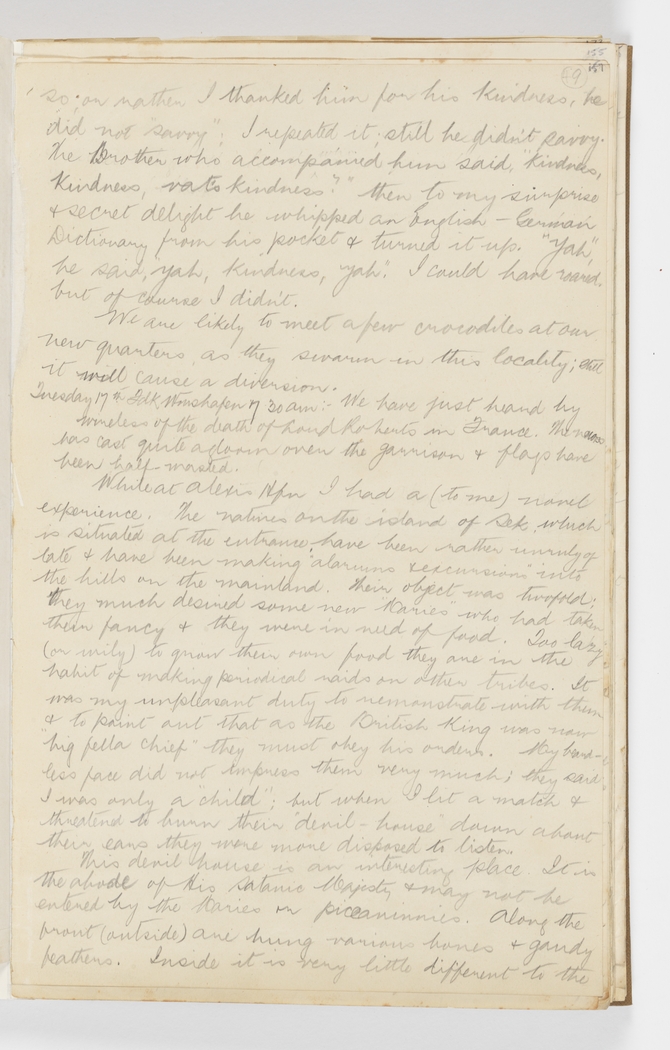 155
157
59
so; or rather I thanked him for his kindness, he
did not "savvy"; I repeated it; still he didn't savvy.
The Brother who accompanied him said, "kindness,
kindness, vats kindness?" then to my surprise
& secret delight he whipped an English - German
Dictionary from his pocket & turned it up. "Yah",
he said, yah, kindness, yah". I could have roared.
but of course I didn't.
We are likely to meet a few crocodiles at our
new quarters, as they swarm in this locality; still
it will cause a diversion.
Tuesday 17th Fdk Wmshafen 7 30 am:- We have just heard by
wireless of the death of Lord Roberts in France. The news
has cast quite a gloom over the garrison & flags have
been half-masted.
While at Alexis Hfn I had a (to me) novel
experience. The natives on the island of Sek, which
is situated at the entrance, have been rather unruly of
late & have been making "alarums & excursions" into
the hills on the mainland. Their object was twofold;
they much desired some new "Maries" who had taken
their fancy & they were in need of food. Too lazy
(or wily) to grow their own food they are in the
habit of making periodical raids on other tribes. It
was my unpleasant duty to remonstrate with them
& to point out that as the British King was now
"big fella chief" they must obey his orders. My beard-
less face did not impress them very much; they said
I was only a "child"; but when I lit a match &
threatend to burn their "devil-house" down about
their ears they were more disposed to listen.
This devil house is an interesting place. It is
the abode of His Satanic Majesty & may not be
entered by the Maries or piccaninnies. Along the
front (outside) are hung various bones & gaudy
feathers. Inside it is very little different to the